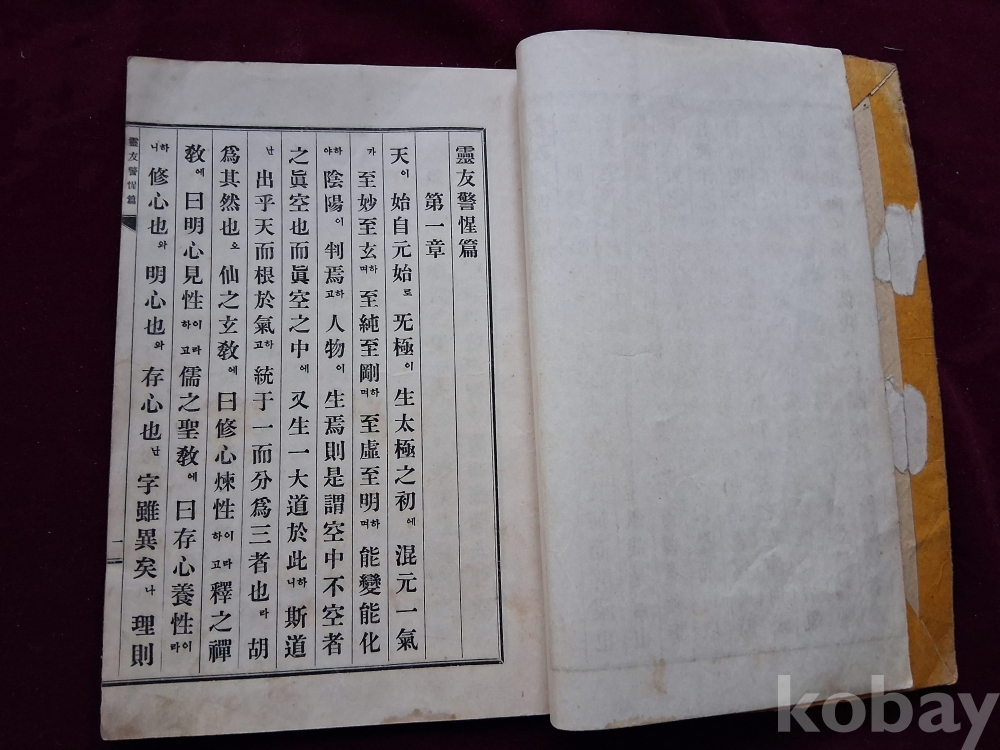 靈友警惺篇
第一章
天이 始自元始로 旡極이 生太極之初에 混元一氣
가 至妙至玄하며 至純至剛하며 至虛至明하며 能變能化
하야 陰陽이 判焉하고 人物이 生焉則是謂空中不空者
之眞空也而眞空之中에 又生一大道於此하니 斯道
난 出乎天而根於氣하고 統于一而分爲三者也라 胡
爲其然也오 仙之玄敎에 曰修心煉性이라하고 釋之禪
敎에 曰明心見性이라하고 儒之聖敎에 曰存心養性이라
하니 修心也와 明心也와 存心也난 字雖異矣나 理則
靈友警惺篇
一
kobay